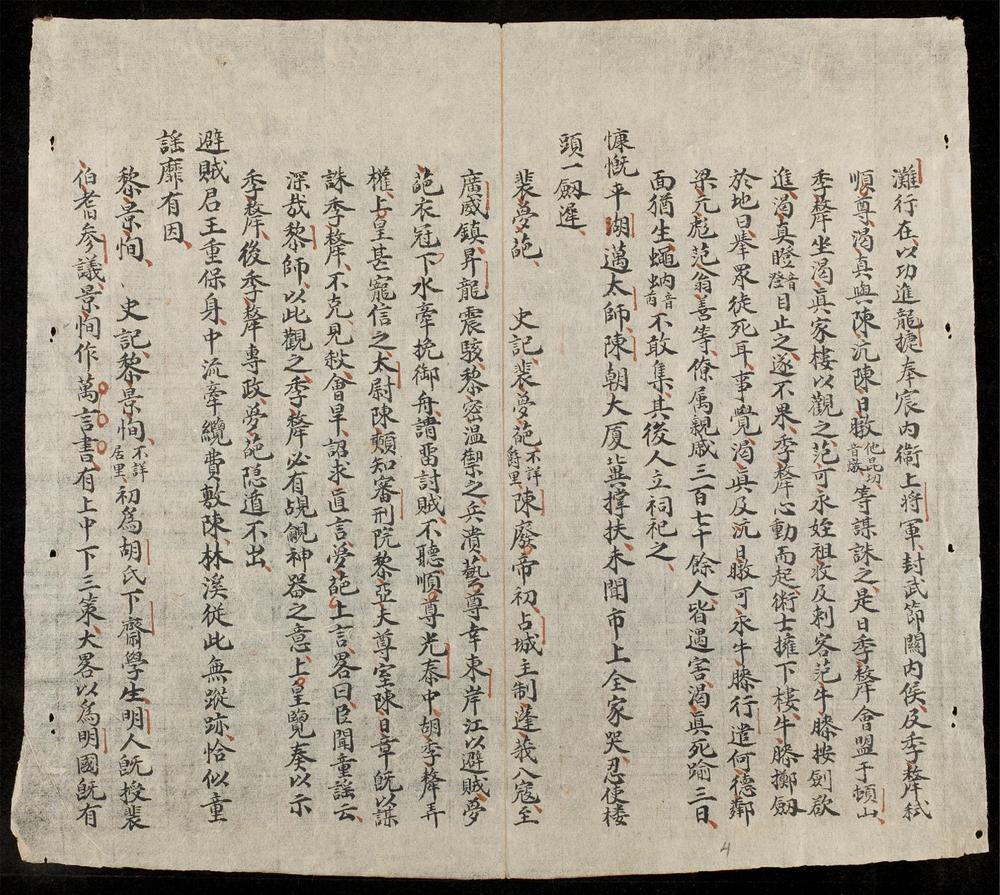 灘行在以功進龍捷奉宸內衛上將軍封武節關內侯及季犛弒
順尊渴真與陳沆陳日暾他昆切音燉等謀誅之是日季犛會盟于頓山
季犛坐渴真家樓以觀之范可永姪祖收及刺客范牛滕按劍欲
進渴真瞪音澄目止之遂不果季犛心動而起術士擁下樓牛滕擲劔
於地曰舉眾徒死耳事覺渴真及沆日暾可永牛滕行遣何德鄰
梁元彪范翁善等僚属親戚三百七十餘人皆遇害渴真死踰三日
面猶生蠅蚋音芮不敢集其後人立祠祀之
慷慨平湖邁太師陳朝大厦冀撑扶未聞市上全家哭忍使樓
頭一劔遲
裴夢葩　史記裴夢葩不詳爵里陳廢帝初占城主制蓬莪入寇至
廣威鎮昇龍震駭黎密溫禦之兵潰藝尊幸東岸江以避賊夢
葩衣冠下水牽挽御舟請畱討賊不聽順尊光泰中胡季犛弄
權上皇甚寵信之太尉陳頵知審刑院黎亞夫尊室陳日章旣以謀
誅季犛不克見殺會旱詔求直言夢葩上言畧曰臣聞童謠云
深哉黎師以此觀之季犛必有覘覦神器之意上皇覽奏以示
季犛後季犛專政夢葩隐遁不出
避賊君王重保身中流牽纜費敷陳林溪從此無蹤跡恰似童
謠靡有因
黎景恂　史記黎景恂不詳居里初為胡氏下齋學生明人旣授裴
伯耆參議景恂作萬言書有上中下三策大畧以為明國旣有
4